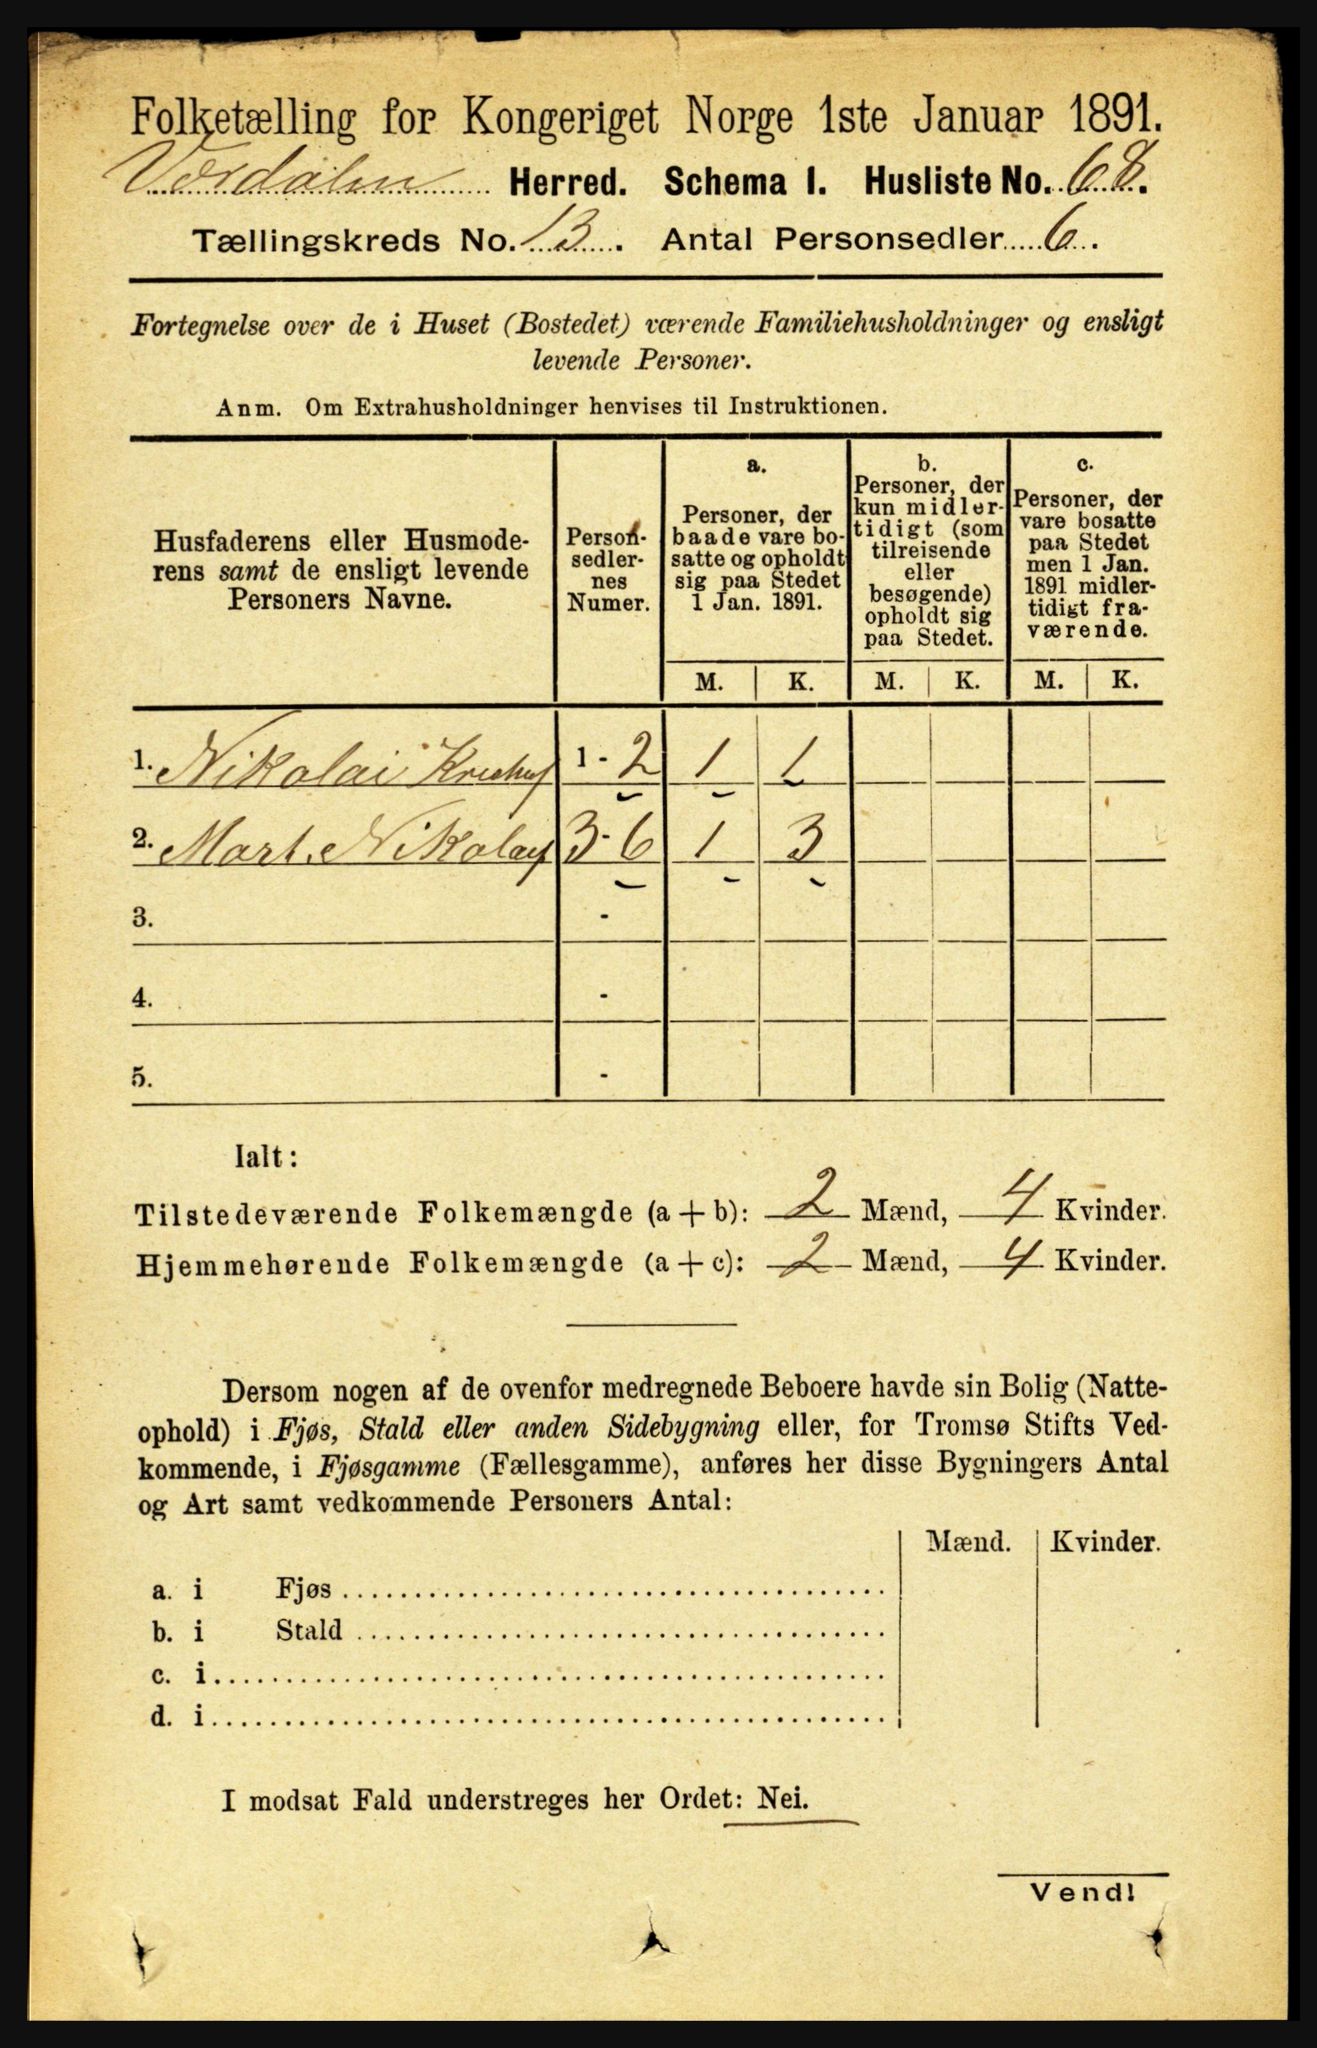 Folketælling for Kongeriget Norge 1ste Januar 1891.
Værdalen Herred. Schema I. Husliste No. 68.
Tællingskreds No. 13. Antal Personsedler 6.
Fortegnelse over de i Huset (Bostedet) værende Familiehusholdninger og ensligt
levende Personer.
Anm. Om Extrahusholdninger henvises til Instruktionen.
Husfaderens eller Husmode-
rens samt de ensligt levende
Personers Navne.
Person-
sedler-
nes
Numer.
a.
Personer, der
baade vare bo-
satte og opholdt
sig paa Stedet
1 Jan. 1891.
b.
Personer, der
kun midler-
tidigt (som
tilreisende
eller
besøgende)
opholdt sig
paa Stedet.
c.
Personer, der
vare bosatte
paa Stedet
men 1 Jan.
1891 midler-
tidigt fra-
værende.
M. K. M. K. M. K.
1. Nikolai 1 - 2 1 1
2. Mart. Nikolays 3 - 6 1 3
3. -
4. -
5. -
Ialt:
Tilstedeværende Folkemængde (a + b): 2 Mænd, 4 Kvinder.
Hjemmehørende Folkemængde (a + c): 2 Mænd, 4 Kvinder.
Dersom nogen af de ovenfor medregnede Beboere havde sin Bolig (Natte-
ophold) i Fjøs, Stald eller anden Sidebygning eller, for Tromsø Stifts Ved-
kommende, i Fjøsgamme (Fællesgamme), anføres her disse Bygningers Antal
og Art samt vedkommende Personers Antal:
Mænd. Kvinder.
a. i Fjøs
b. i Stald
c. i
d. i
I modsat Fald understreges her Ordet: Nei.
Vend!